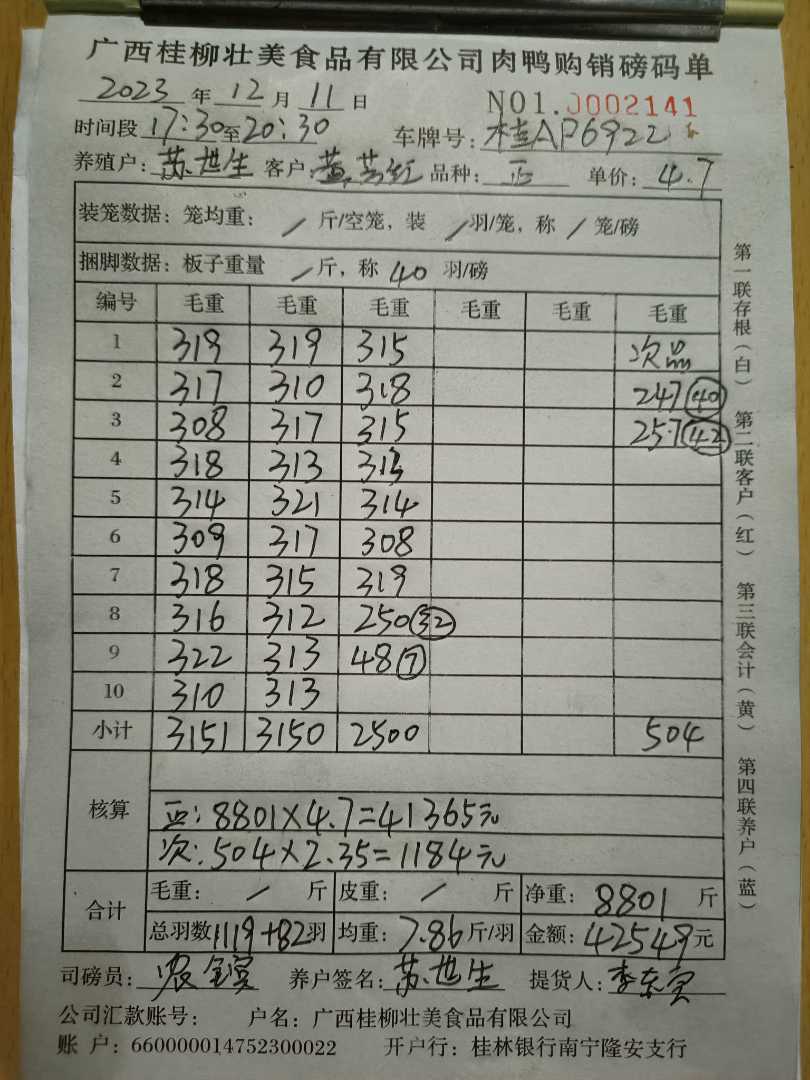 广西桂柳壮美食品有限公司肉鸭购销磅码单
2023 年 12 月 11 日 NO1.0002141
时间段 17:30至20:30 车牌号: 桂AP6922
养殖户: 苏世生 客户: 黄 品种: 正 单价: 4.7
装笼数据: 笼均重: / 斤/空笼, 装 / 羽/笼, 称 / 笼/磅
捆脚数据: 板子重量 / 斤, 称 40 羽/磅
编号 毛重 毛重 毛重 毛重 毛重 毛重
1 319 319 315 次品
2 317 310 318 247 (40)
3 308 317 315 257 (42)
4 318 313
5 314 321 314
6 309 317 308
7 318 315 319
8 316 312 250 (32)
9 322 313 48 (7)
10 310 313
小计 3151 3150 2500 504
核算
正: 8801×4.7=41365元
次: 504×2.35=1184元
合计 毛重: / 斤 皮重: / 斤 净重: 8801 斤
总羽数 1119+82 羽 均重: 7.86 斤/羽 金额: 42549 元
司磅员: 农 养户签名: 苏世生 提货人: 李
公司汇款账号: 户名: 广西桂柳壮美食品有限公司
账 户: 660000014752300022 开户行: 桂林银行南宁隆安支行
第一联存根(白) 第二联客户(红) 第三联会计(黄) 第四联养户(蓝)